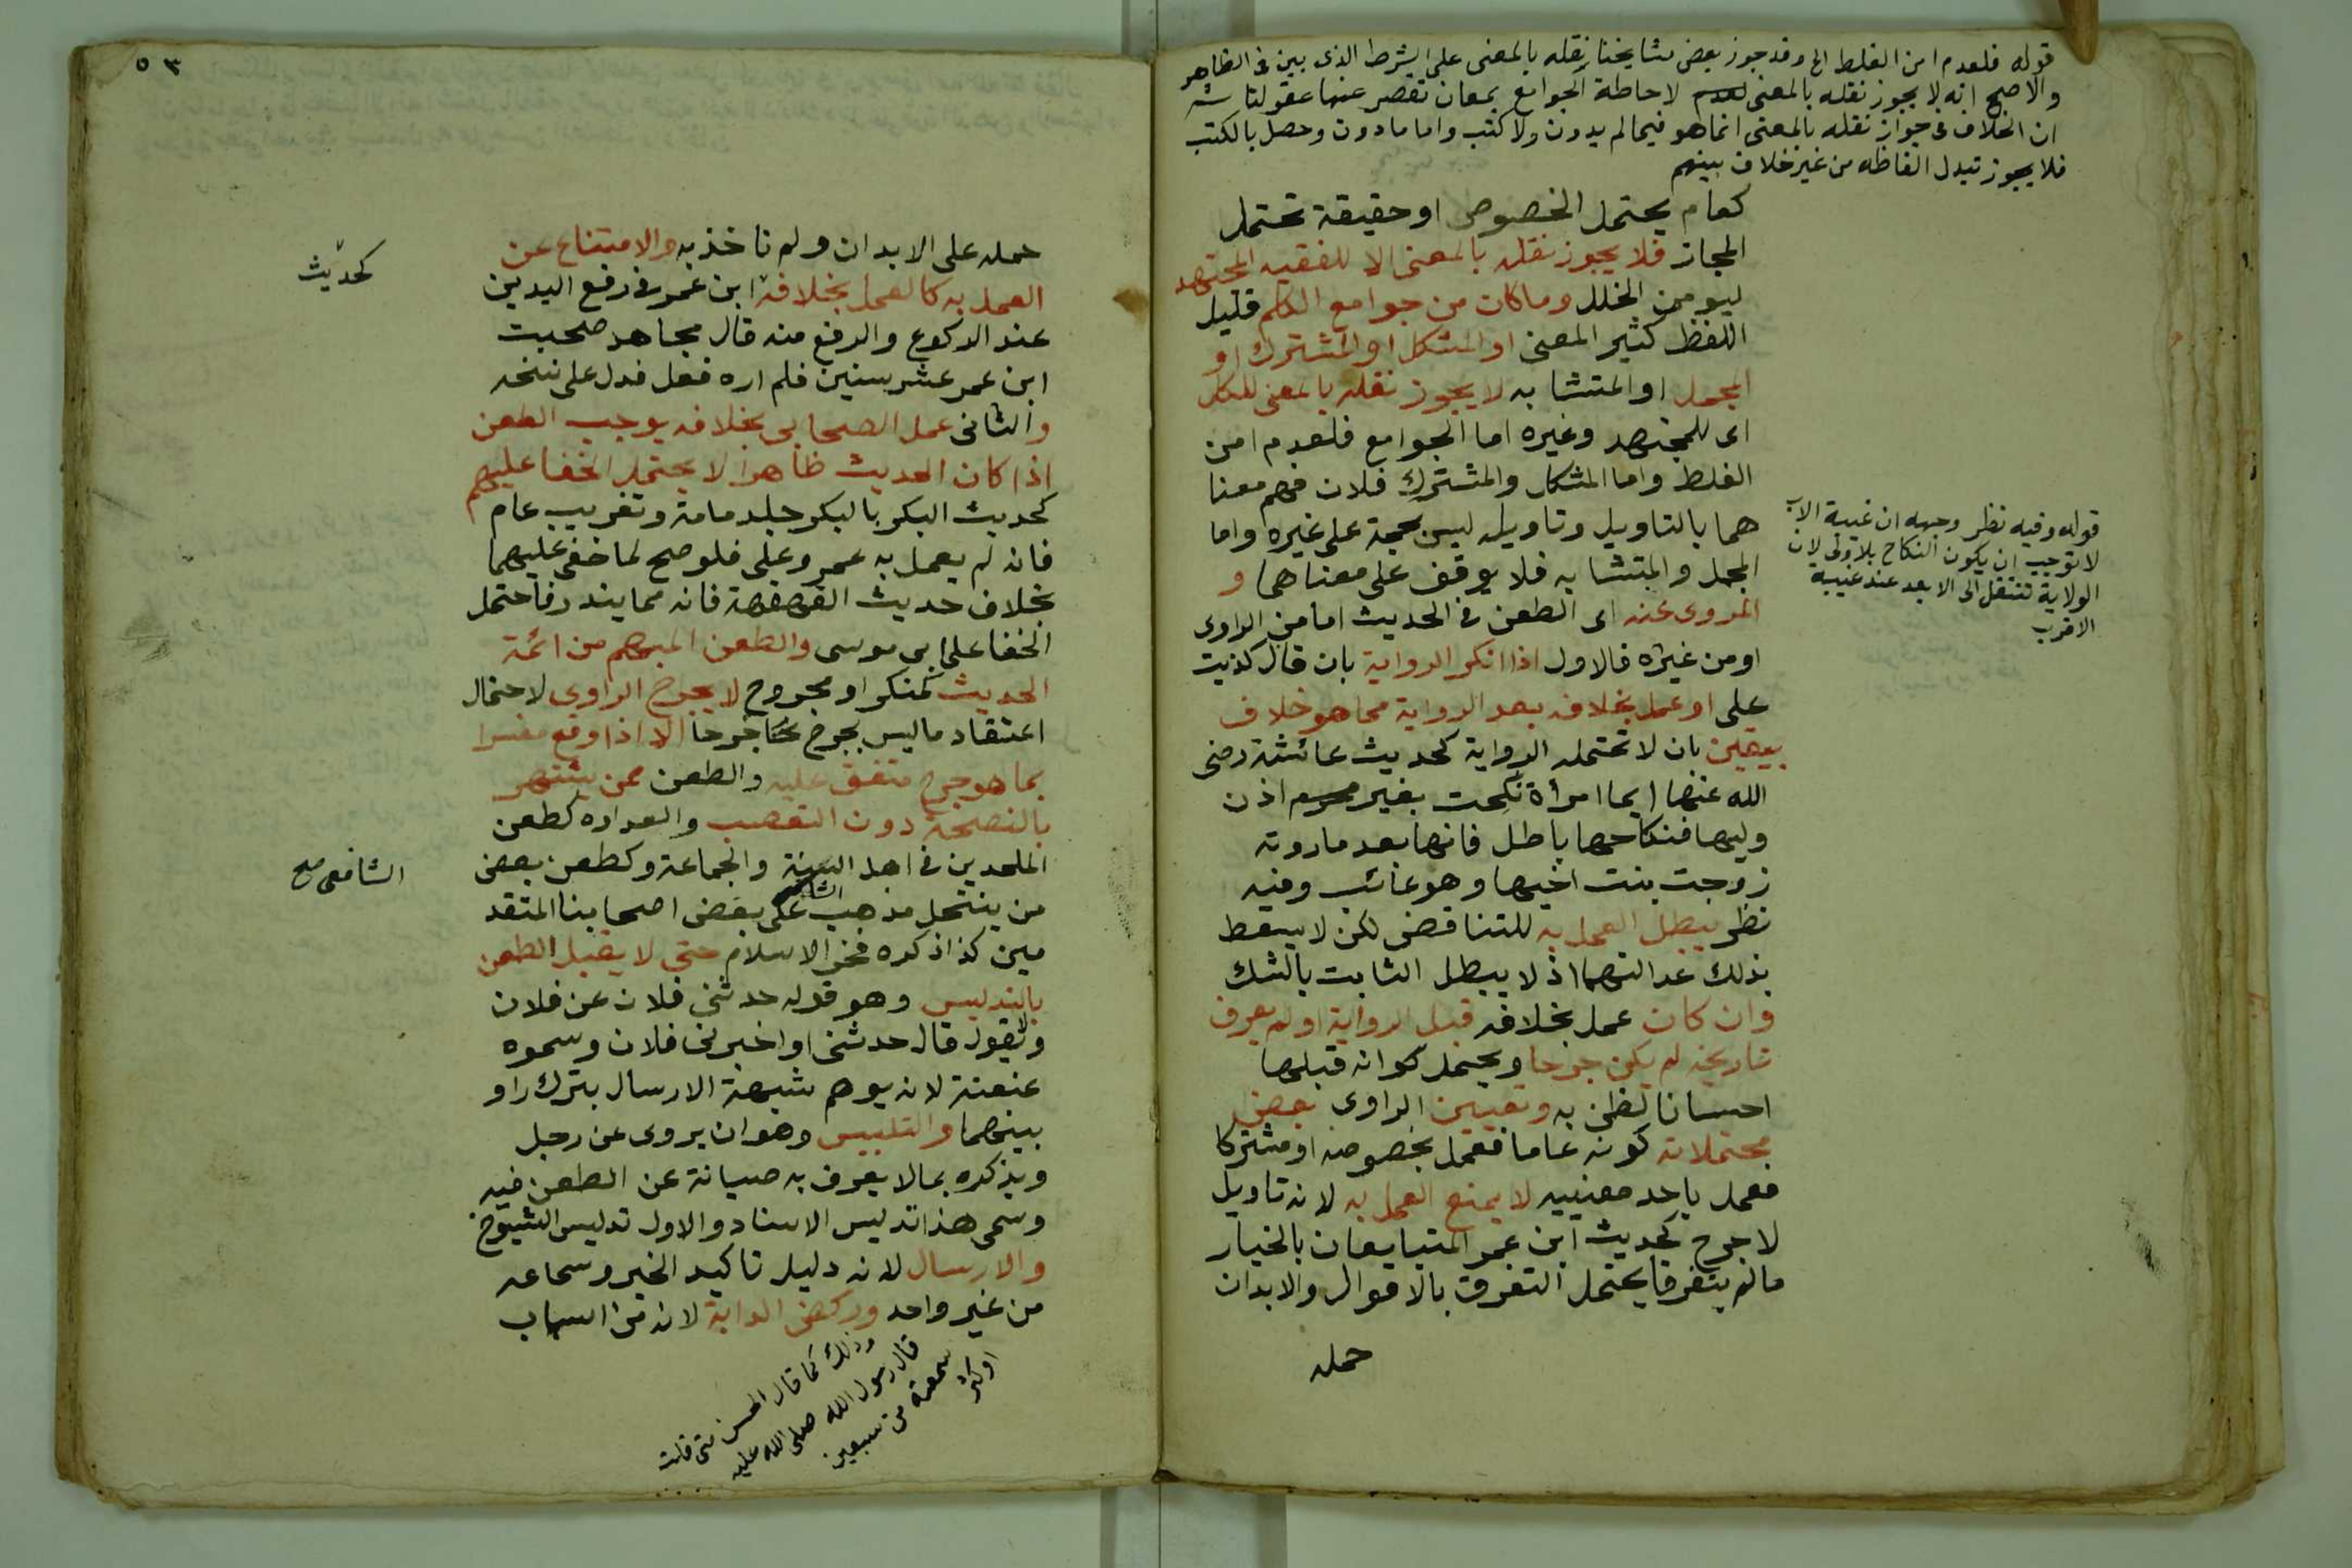 قوله فلعدم امن الغلط الخ وقد جوز بعض مشايخنا نقله بالمعنى على الشرط الذى بين فى الظاهر
والاصح انه لا يجوز نقله بالمعنى لاحاطة الجوامع بمعان تقصر عنها عقولنا ثم
ان الخلاف فى جواز نقله بالمعنى انما هو فيما لم يدون ولا كتب واما ما دون وحصل بالكتب
فلا يجوز تبدل الفاظه من غير خلاف بينهم
كعام يحتمل الخصوص او حقيقة تحتمل
المجاز فلا يجوز نقله بالمعنى الا للفقيه المجتهد
ليومن الخلل وما كان من جوامع الكلم قليل
اللفظ كثير المعنى او المشكل او المشترك او
المجمل او المتشابه لا يجوز نقله بالمعنى للكل
اى للمجتهد وغيره اما الجوامع فلعدم امن
الغلط واما المشكل والمشترك فلان فهم معنا
هما بالتاويل وتاويله ليس بحجة على غيره واما
المجمل والمتشابه فلا يوقف على معناهما و
المروى عنه اى الطعن فى الحديث اما من الراوى
او من غيره فالاول اذا انكر الرواية بان قال كذبت
على او عمل بخلافه بعد الرواية مما هو خلاف
بيقين بان لا تحتمله الرواية كحديث عائشة رضى
الله عنها ايما امرأة نكحت بغير اذن
وليها فنكاحها باطل فانها بعد ما روته
زوجت بنت اخيها وهو غائب وفيه
نظر يبطل العمل به للتناقض لكن لا يسقط
بذلك عدالتهما اذ لا يبطل الثابت بالشك
وان كان عمل بخلافه قبل الرواية او لم يعرف
تاريخه لم يكن جرحا ويحتمل كوانه قبلها
احسانا لظن به وتعيين الراوى بعض
محتملاته كونه عاما فعمل بخصوصه او مشتركا
فعمل باحد معنييه لا يمنع العمل به لانه تاويل
لا جرح كحديث ابن عمر المتبايعان بالخيار
ما لم يتفرقا يحتمل التفرق بالاقوال والابدان
حمله
قوله وفيه نظر وجهه ان غيبة الاب
لا توجب ان يكون النكاح بلا ولى لان
الولاية تنتقل الى الابعد عند غيبة
الاقرب
٥٣
حمله على الابدان ولم ناخذ به والامتناع عن
العمل به كالعمل بخلافه ابن عمر فى رفع اليدين
كحديث
عند الركوع والرفع منه قال مجاهد صحبت
ابن عمر عشر سنين فلم اره فعل فدل على نسخه
والثانى عمل الصحابى بخلافه يوجب الطعن
اذا كان الحديث ظاهرا لا يحتمل الخفا عليهم
كحديث البكر بالبكر جلد مامة وتغريب عام
فانه لم يعمل به عمر وعلى فلو صح لما خفى عليهما
بخلاف حديث القهقهة فانه مما يندر فاحتمل
الخفا على ابى موسى والطعن المبهم من ائمة
الحديث كمنكر او مجروح لا يجرح الراوى لاحتمال
اعتقاد ما ليس بجرح جرحا الا اذا وقع مفسرا
بما هو جرح متفق عليه والطعن ممن يشتهر
بالنصيحة دون التعصب والعداوه كطعن
الملحدين فى اهل السنة والجماعة وكطعن بعض
الشافعى صح
من ينتحل مذهب على بعض اصحابنا المتقد
مين كذا ذكره فخر الاسلام حتى لا يقبل الطعن
بالتدليس وهو قوله حدثنى فلان عن فلان
ولا يقول قال حدثنى او اخبرنى فلان وسموه
عنعنة لانه يوهم شبهة الارسال بترك راو
بينهما والتلبيس وهو ان يروى عن رجل
ويذكره بما لا يعرف به صيانة عن الطعن فيه
وسمى هذا تدليس الاسناد والاول تدليس الشيوخ
والارسال لانه دليل تاكيد الخبر وسماعه
من غير واحد وركض الدابة لانه من اسباب
وذلك كما قال الحسن متى قلت
قال رسول الله صلى الله عليه
سمعته من سبعين
او اكثر